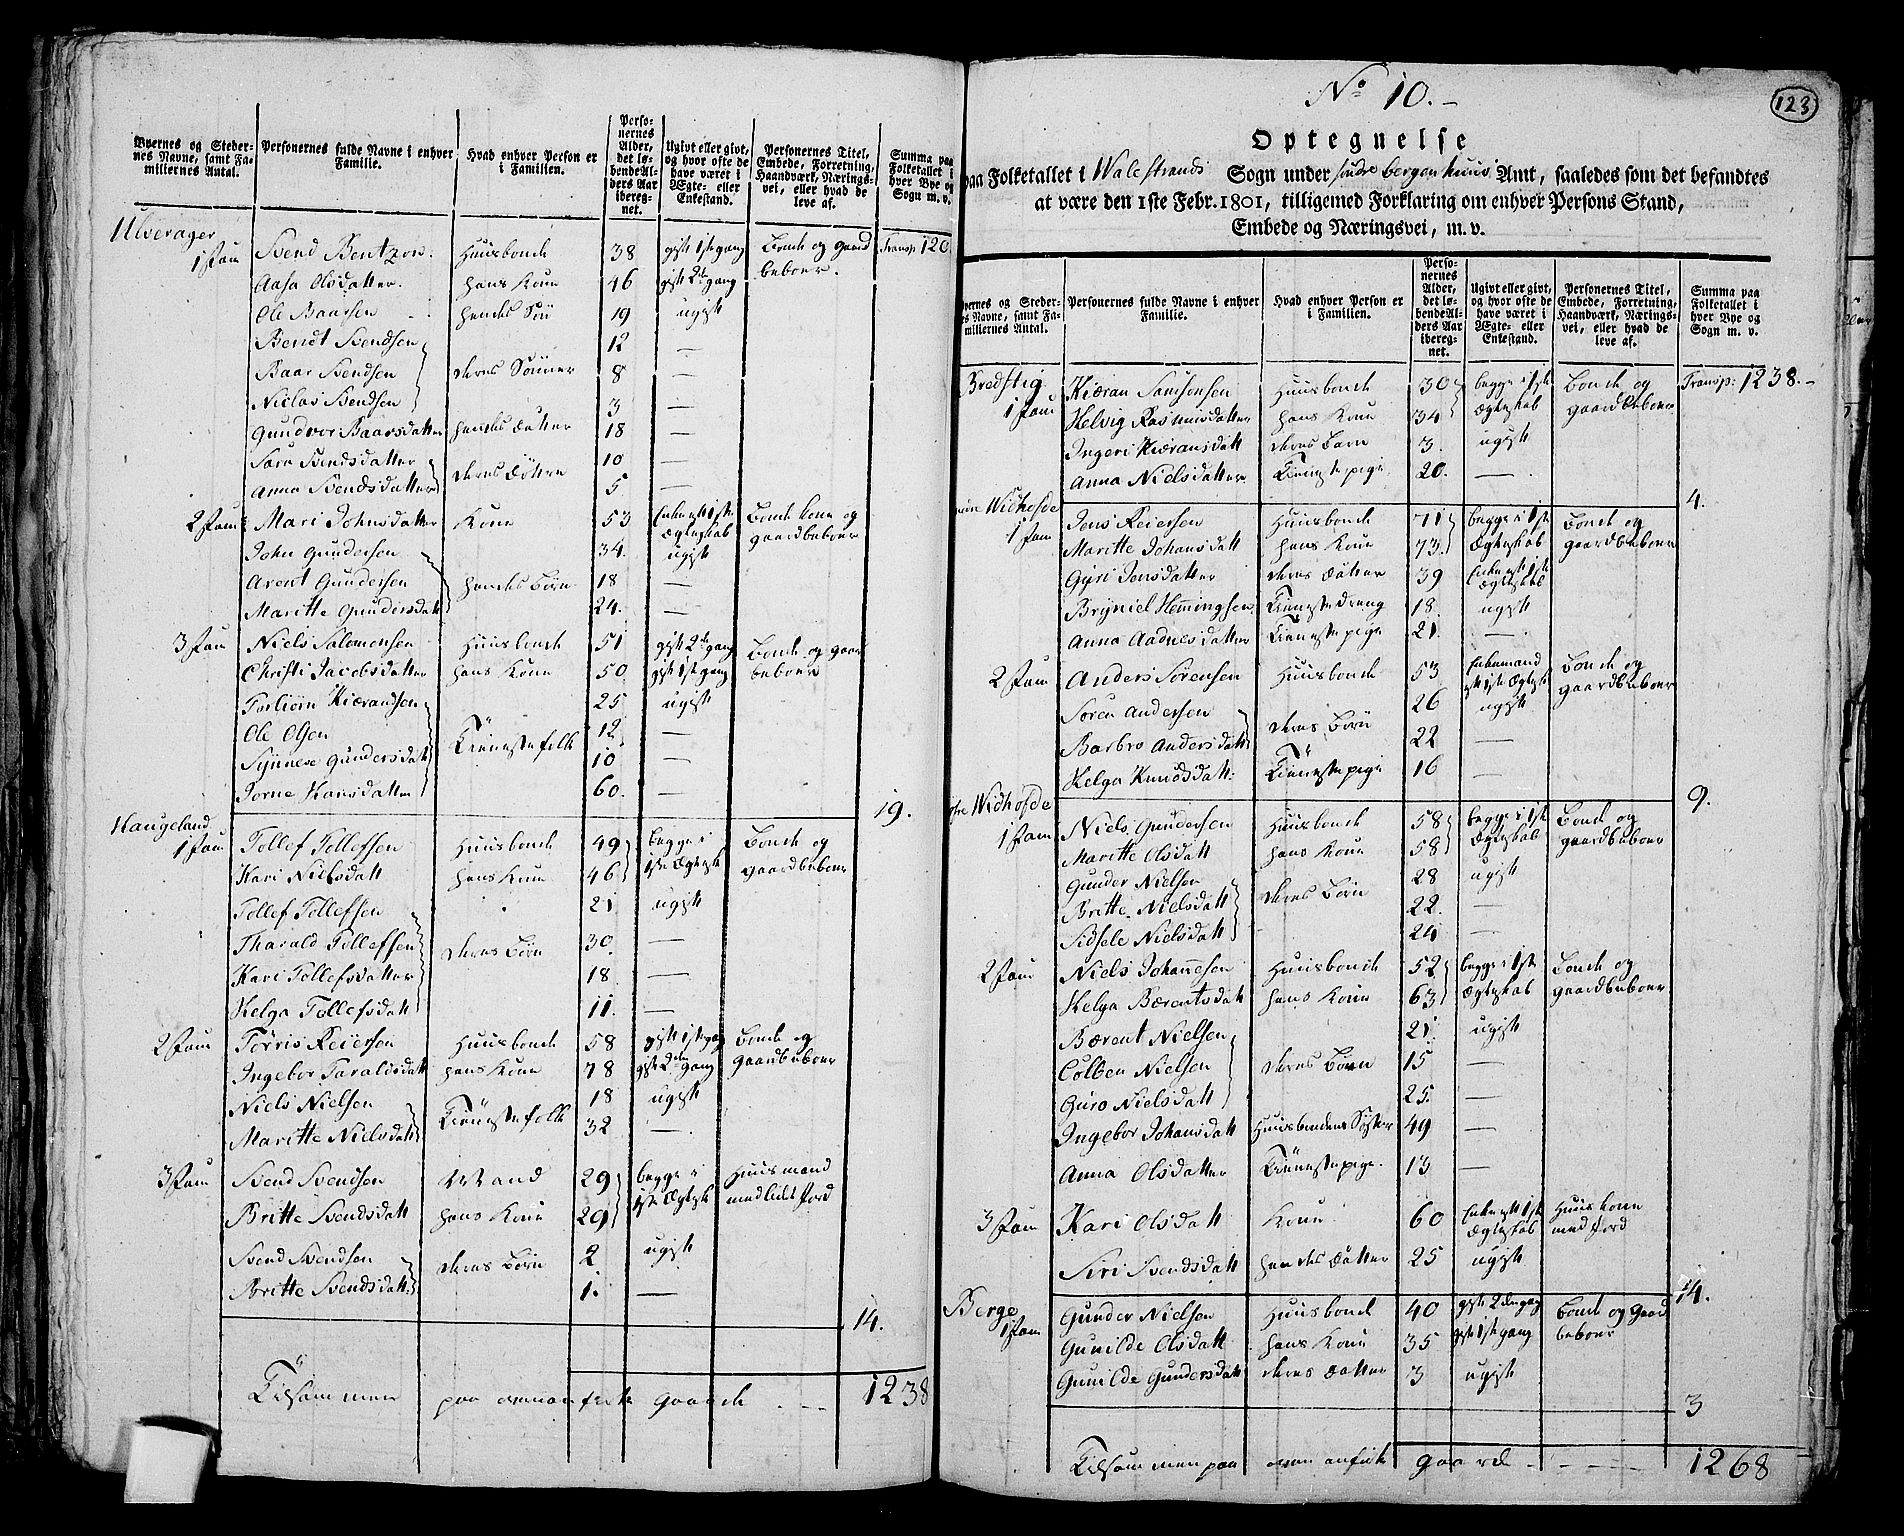 Byernes og Steder-
nes Navne, samt Fa-
milliernes Antal.
Personernes fulde Navne i enhver
Familie.
Hvad enhver Person er
i Familien.
Perso-
nernes
Alder,
det lø-
bende Al-
ders Aar
ibereg-
net.
Ugivt eller givt,
og hvor ofte de
have været i
Ægte- eller
Enkestand.
Personernes Titel,
Embede, Forretning,
Haandværk, Nærings-
vei, eller hvad de
leve af.
Summa paa
Folketallet i
hver Bye og
Sogn m. v.
Ulverager
1 Fam Svend Bentzon Huusbonde 38 gift 1ste gang Bonde og gaard Transp: 120
Aasa Olsdatter hans Kone 46 gift 2den gang beboer.
Ole Baarsen hendes Søn 19 ugift
Bendt Svendsen 12 —
Baar Svendsen deres Sönner 8 —
Niclas Svendsen 3 —
Gundvor Baarsdatter hendes Datter 18 —
Sara Svendsdatter 10 —
Anna Svendsdatter deres Döttre 5 —
2 Fam Mari Johnsdatter Kone 53 Enke af 1ste Bonde kone og
John Gundersen 34. Ægteskab ugift gaardbeboer
Arent Gundersen hendes Börn 18 —
Maritte Gundersdatt 24. —
3 Fam Niels Salomonsen Huusbonde 51 gift 2den gang Bonde og gaard
Christi Jacobsdatter hans Kone 50 gift 1ste gang beboer
Torbiörn Kiærandsen 25 ugift
Ole Olsen 12 —
Synneve Gundersdatt Tienestefolk 10 —
Jorne Hansdatter 60. —
19.
Haugeland
1 Fam Tollef Tollefsen Huusbonde 49 begge i Bonde og
Kari Nielsdatt hans Kone 46 1ste Ægtesk gaardbeboer
Tollef Tollefsen 21 ugift
Tharald Tollefsen deres Börn 30 —
Kari Tollefsdatter 18 —
Helga Tollefsdatt 11. —
2 Fam Törris Reiersen Huusbonde 58 gift 1ste gang Bonde og
Ingebor Taraldsdatt hans Kone 78 gift 2den gang gaardbeboer
Niels Nielsen 18 ugift
Maritte Nielsdatt Tienestefolk 32 —
3 Fam Svend Svendsen Mand 29 begge i Huusmand
Britte Svendsdatt hans Kone 29 1ste Ægtesk med lidet Jord
Svend Svendsen 2 ugift
Britte Svendsdatt deres Börn 1. —
14.
Tilsammen paa ovenanförte gaarde 1238
123
No 10.
Optegnelse
paa Folketallet i Walestrands Sogn under söndre bergenhuus Amt, saaledes som det befandtes
at være den 1ste Febr. 1801, tilligemed Forklaring om enhver Persons Stand,
Embede og Næringsvei, m. v.
Byernes og Steder-
nes Navne, samt Fa-
milliernes Antal.
Personernes fulde Navne i enhver
Familie.
Hvad enhver Person er
i Familien.
Perso-
nernes
Alder,
det lø-
bende Al-
ders Aar
ibereg-
net.
Ugivt eller givt,
og hvor ofte de
have været i
Ægte- eller
Enkestand.
Personernes Titel,
Embede, Forretning,
Haandværk, Nærings-
vei, eller hvad de
leve af.
Summa paa
Folketallet i
hver Bye og
Sogn m. v.
Bredstig Transp: 1238.
1 Fam Kiæran Samsonsen Huusbonde 30 begge i 1ste Bonde og
Helvig Rasmusdatter hans Kone 34 Ægteskab gaardbeboer
Ingeri Kiæransdatt deres Barn 3. ugift
Anna Nielsdatter Tienestepige 20. —
4.
Widhofde
1 Fam Jens Reiersen Huusbonde 71 begge i 1ste Bonde og
Maritte Johansdatt hans Kone 73. Ægteskab gaardbeboer
Gyri Jensdatter deres Datter 39 Enke af 1ste Ægteskab
Bryniel Hemingsen Tienestedreng 18. ugift
Anna Aadnesdatter Tienestepige 21. —
2 Fam Anders Sörensen Huusbonde 53 Enkemand Bonde og
Sören Andersen 26 ugift gaardbeboer
Barbro Andersdatt deres Börn 22 —
Helga Knudsdatt: Tienestepige 16 —
9.
Widhofde
1 Fam Niels Gundersen Huusbonde 58 begge i 1ste Bonde og
Maritte Olsdatt hans Kone 58 Ægteskab gaardbeboer
Gunder Nielsen 28 ugift
Britte Nielsdatt deres Börn 22. —
Sidsele Nielsdatt 24 —
2 Fam Niels Johannesen Huusbonde 52 begge i 1ste Bonde og
Helga Bærentsdatt hans Kone 63 Ægteskab gaardbeboer
Bærent Nielsen 21. ugift
Colben Nielsen deres Börn 15 —
Guro Nielsdatt 25. —
Ingebor Johansdatt Huusbondens Söster 49 —
Anna Olsdatter Tienestepige 13 —
3 Fam Kari Olsdatt Kone 60 Enke af 1ste Huuskone
Siri Svendsdatt hendes Datter 25 Ægteskab ugift med Jord
14.
Berge
1 Fam Gunder Nielsen Huusbonde 40 gift 2den gang Bonde og Gaard
Gunilde Olsdatt hans Kone 35 gift 1ste gang beboer
Gunilde Gundersdatt deres Datter 3 ugift
3
Tilsammen paa ovenanförte gaard 1268